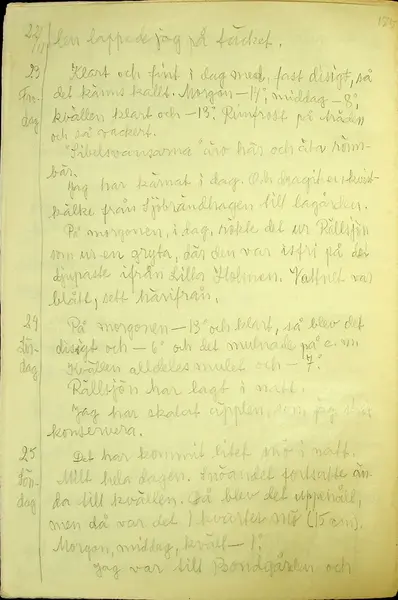 22/11 len lappade jag på täcket.
23 Klart och fint i dag med, fast disigt, så
Fre- det känns kallt. Morgon -11°, middag -8°,
dag kvällen klart och -13°. Rimfrost på träden
och så vackert.
"Sibelsvansarna" äro här och äta rönn-
bär.
Jag har kärnat i dag. Och dragit en
kälke från Sjöbrändhagen till lagården.
På morgonen, i dag, rökte det ur Rällsjön
som ur en gryta, där den var isfri på det
djupaste ifrån Lilla Holmen. Vattnet var
blått, sett härifrån.
24 På morgonen -13° och klart, så blev det
Lör- disigt och -6° och det mulnade på e.m.
dag Kvällen alldeles mulet och -7°.
Rällsjön har lagt i natt.
Jag har skalat äpplen, som jag
konservera.
25 Det har kommit litet snö i natt.
Sön- Milt hela dagen. Snöandet fortsatte än-
dag da till kvällen. Då blev det uppehåll,
men då var det 1 kvarter snö (15 cm).
Morgon, middag, kväll -1°.
Jag var till Bondgården och